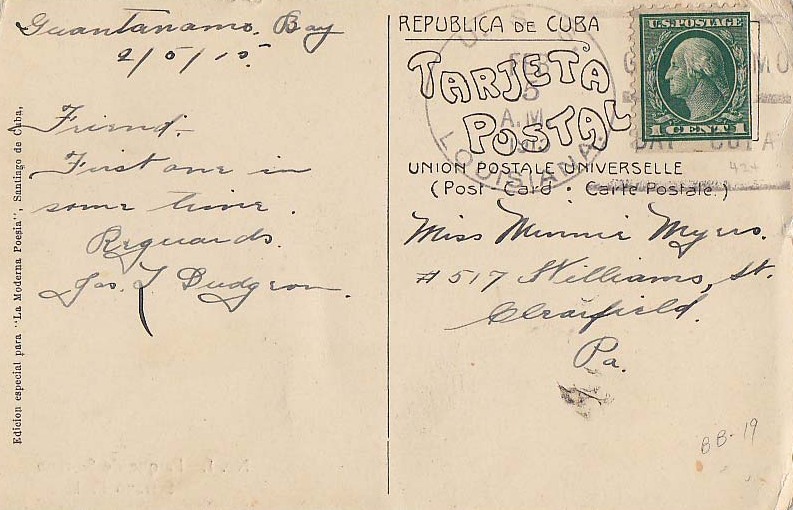 Guantanamo, Bay
2/5/15.
Friend.
First one in
some time.
Reguards.
Jas. T Dudgeon.
Edicion especial para "La Moderna Poesia", Santiago de Cuba,
REPUBLICA DE CUBA
TARJETA
POSTAL
UNION POSTALE UNIVERSELLE
(Post-Card - Carte Postale.)
U.S.S.
FEB
5
A.M.
LOUISIANA.
U.S. POSTAGE
1 CENT 1
BAY CUBA
Miss Minnie Myers.
#517 Williams, St.
Clearfield.
Pa.
BB-19